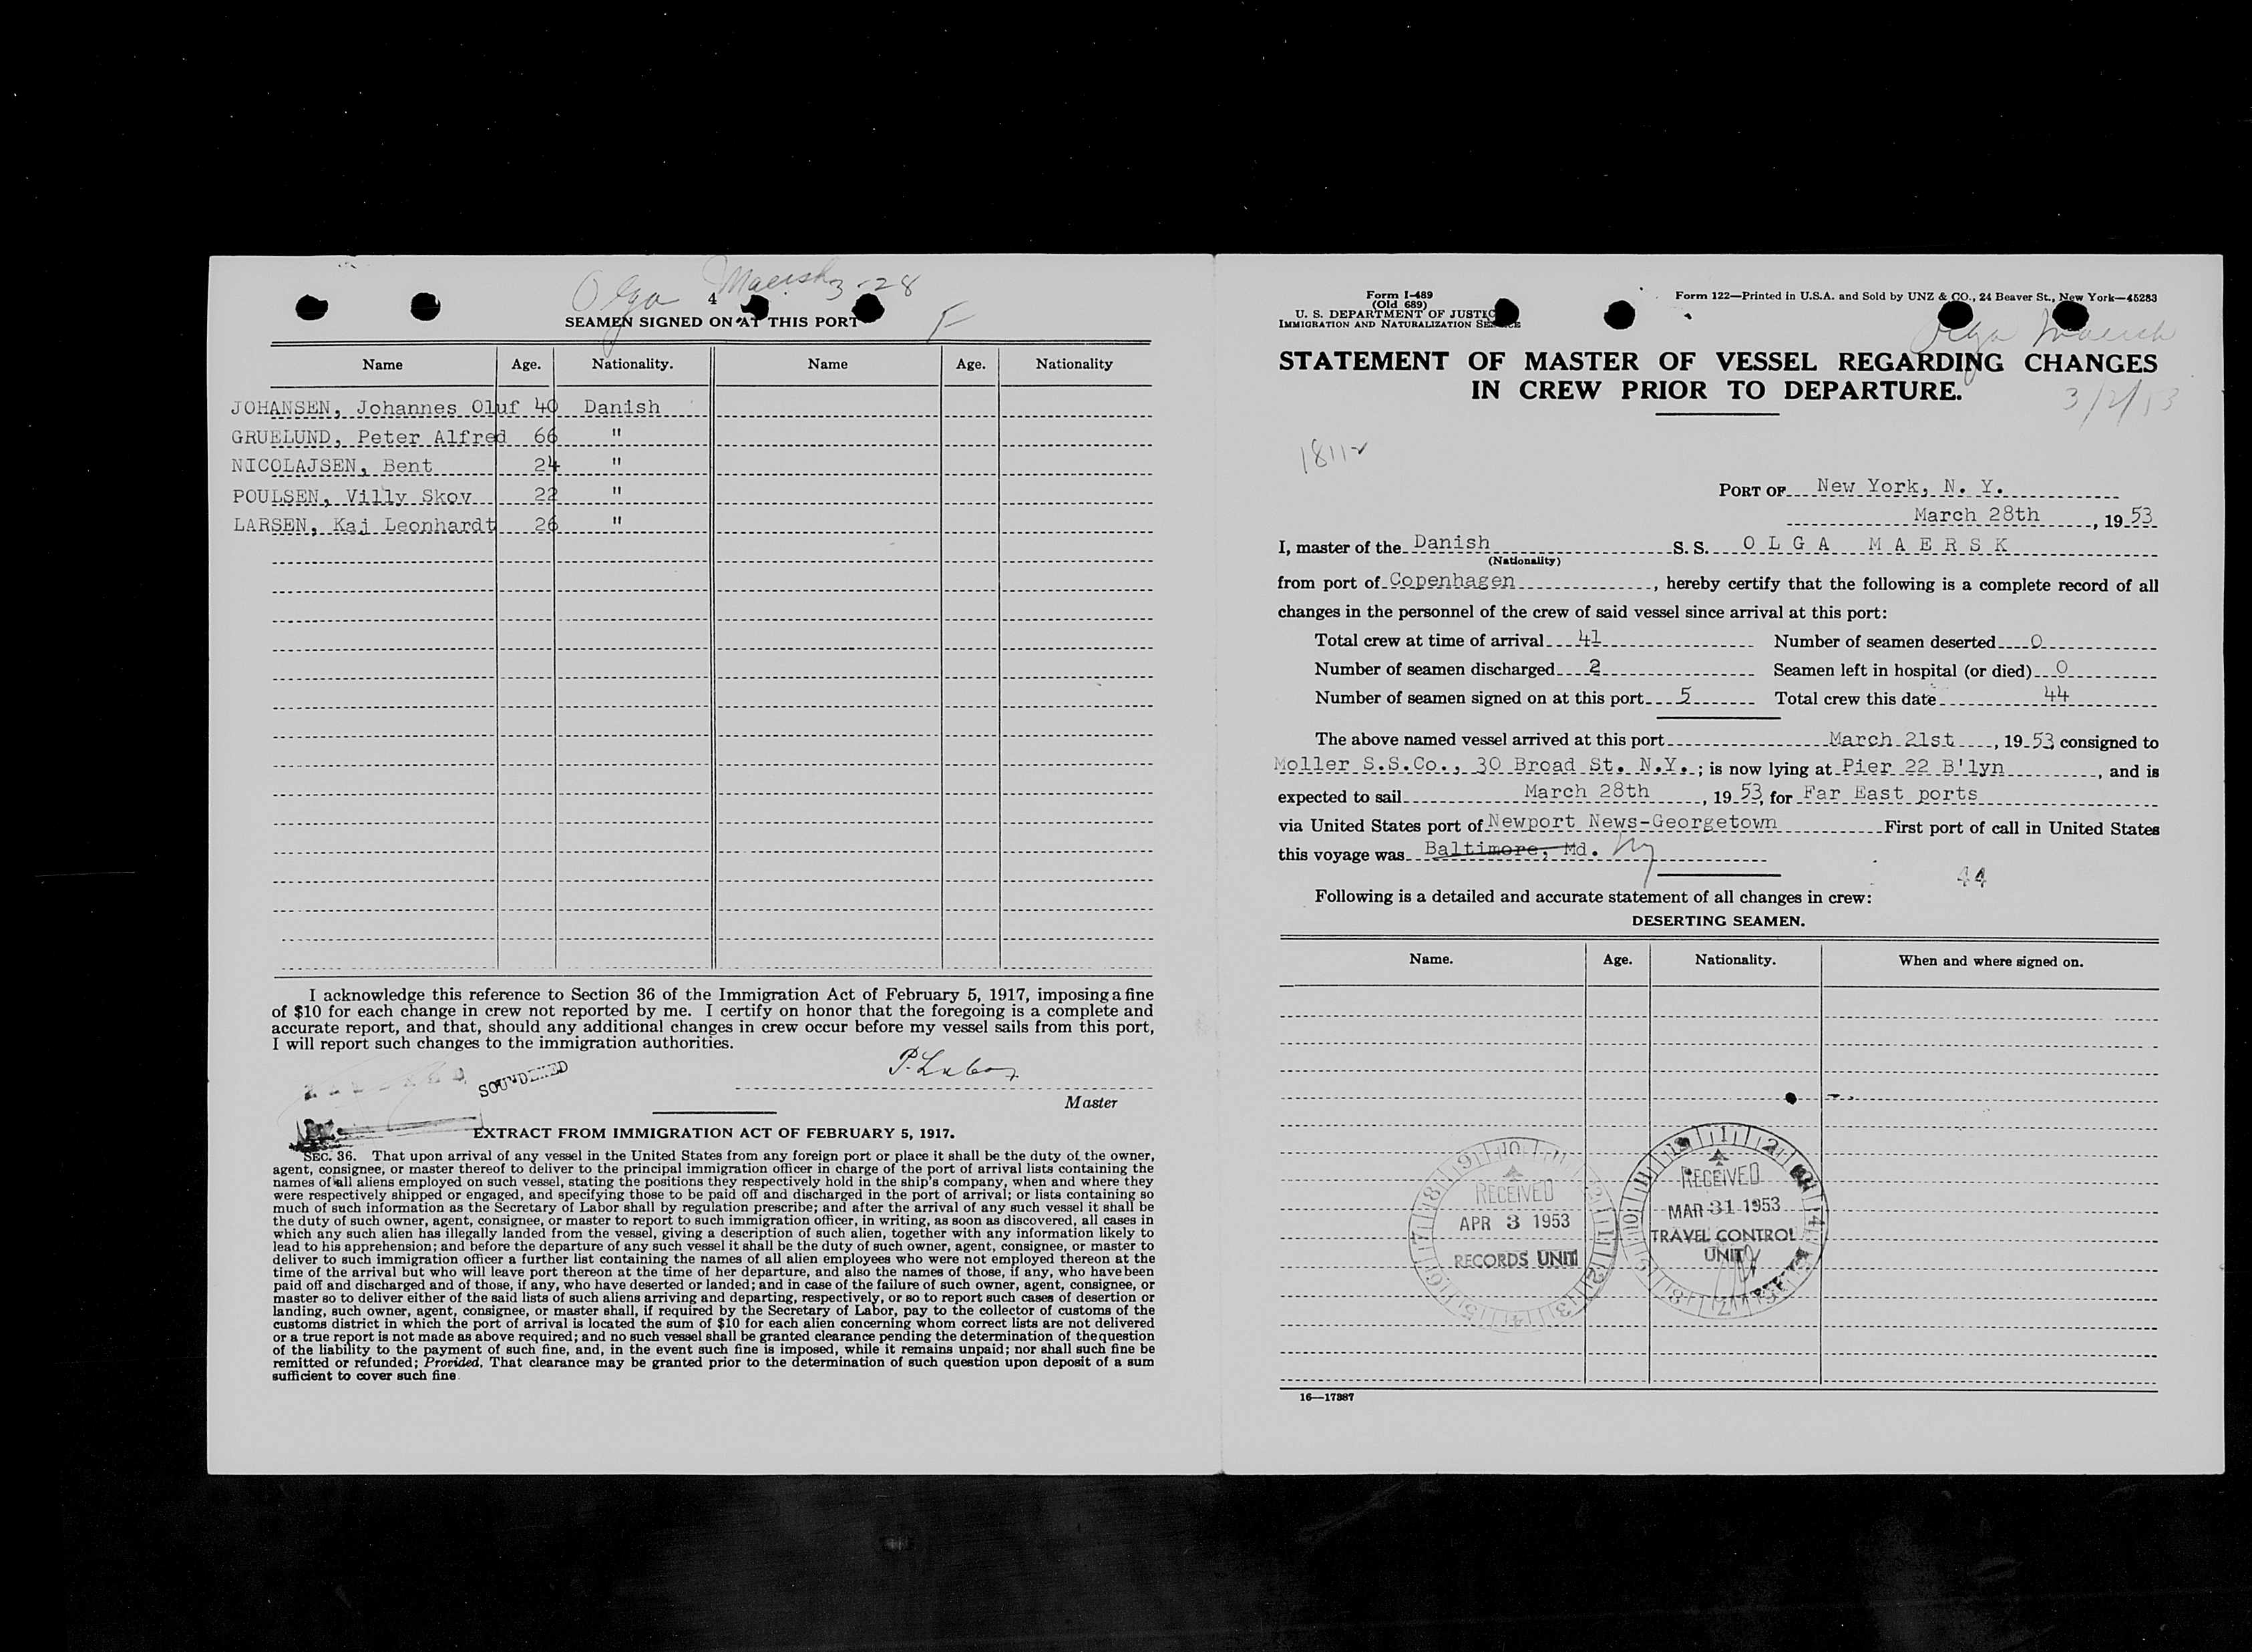 Olga Maersk 3-28
4
SEAMEN SIGNED ON AT THIS PORT
F
Name Age. Nationality. Name Age. Nationality
JOHANSEN, Johannes Oluf 40 Danish
GRUELUND, Peter Alfred 66 "
NICOLAJSEN, Bent 24 "
POULSEN, Villy Skov 22 "
LARSEN, Kaj Leonhardt 26 "
I acknowledge this reference to Section 36 of the Immigration Act of February 5, 1917, imposing a fine
of $10 for each change in crew not reported by me. I certify on honor that the foregoing is a complete and
accurate report, and that, should any additional changes in crew occur before my vessel sails from this port,
I will report such changes to the immigration authorities.
SOUNDEXED
Master
EXTRACT FROM IMMIGRATION ACT OF FEBRUARY 5, 1917.
SEC. 36. That upon arrival of any vessel in the United States from any foreign port or place it shall be the duty of the owner,
agent, consignee, or master thereof to deliver to the principal immigration officer in charge of the port of arrival lists containing the
names of all aliens employed on such vessel, stating the positions they respectively hold in the ship's company, when and where they
were respectively shipped or engaged, and specifying those to be paid off and discharged in the port of arrival; or lists containing so
much of such information as the Secretary of Labor shall by regulation prescribe; and after the arrival of any such vessel it shall be
the duty of such owner, agent, consignee, or master to report to such immigration officer, in writing, as soon as discovered, all cases in
which any such alien has illegally landed from the vessel, giving a description of such alien, together with any information likely to
lead to his apprehension; and before the departure of any such vessel it shall be the duty of such owner, agent, consignee, or master to
deliver to such immigration officer a further list containing the names of all alien employees who were not employed thereon at the
time of the arrival but who will leave port thereon at the time of her departure, and also the names of those, if any, who have been
paid off and discharged and of those, if any, who have deserted or landed; and in case of the failure of such owner, agent, consignee, or
master so to deliver either of the said lists of such aliens arriving and departing, respectively, or so to report such cases of desertion or
landing, such owner, agent, consignee, or master shall, if required by the Secretary of Labor, pay to the collector of customs of the
customs district in which the port of arrival is located the sum of $10 for each alien concerning whom correct lists are not delivered
or a true report is not made as above required; and no such vessel shall be granted clearance pending the determination of the question
of the liability to the payment of such fine, and, in the event such fine is imposed, while it remains unpaid; nor shall such fine be
remitted or refunded; Provided, That clearance may be granted prior to the determination of such question upon deposit of a sum
sufficient to cover such fine.
Form I-489
(Old 689)
U. S. DEPARTMENT OF JUSTIC
IMMIGRATION AND NATURALIZATION SERVICE
Form 122—Printed in U.S.A. and Sold by UNZ & CO., 24 Beaver St., New York—45283
Olga Maersk
STATEMENT OF MASTER OF VESSEL REGARDING CHANGES
IN CREW PRIOR TO DEPARTURE.
PORT OF New York, N. Y.
March 28th, 1953
I, master of the Danish S. S. OLGA MAERSK
(Nationality)
from port of Copenhagen, hereby certify that the following is a complete record of all
changes in the personnel of the crew of said vessel since arrival at this port:
Total crew at time of arrival 41 Number of seamen deserted 0
Number of seamen discharged 2 Seamen left in hospital (or died) 0
Number of seamen signed on at this port 5 Total crew this date 44
The above named vessel arrived at this port March 21st, 1953, consigned to
Moller S.S.Co., 30 Broad St. N.Y.; is now lying at Pier 22 B'lyn, and is
expected to sail March 28th, 1953, for Far East ports
via United States port of Newport News-Georgetown First port of call in United States
this voyage was Baltimore, Md. Ny
44
Following is a detailed and accurate statement of all changes in crew:
DESERTING SEAMEN.
Name. Age. Nationality. When and where signed on.
RECEIVED
APR 3 1953
RECORDS UNIT
RECEIVED
MAR 31 1953
TRAVEL CONTROL
UNIT
16—17387